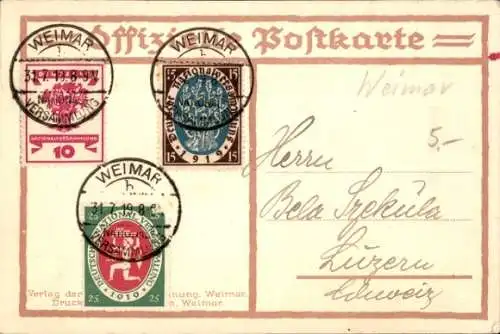 Offizielle Postkarte
WEIMAR
31.7.19.8-9V
NATIONAL-
VERSAMMLUNG
NATIONALVERSAMMLUNG
10
WEIMAR
15 15
Deutsche Nationalversammlung
1919
15 15
Weimar
5.-
WEIMAR
b
31.7.19.8
NATIONAL-
VERSAMMLUNG
DEUTSCHE NATIONALVERSAMMLUNG
1919
25 25
Herrn
Bela Szekúla
Luzern
Schweiz
Verlag der nung, Weimar.
Druck n, Weimar.